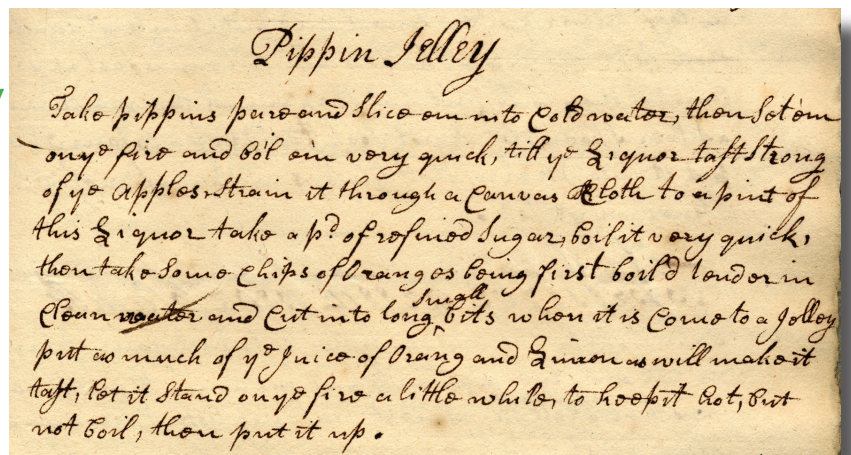 Pippin Jelley
Take pippins pare and Slice em into Cold water, then Set em
on ye fire and boil em very quick, till ye Liquor tast Strong
of ye Apples, Strain it through a Canvas Cloth to a pint of
this Liquor take a pd of refined Sugar, boil it very quick,
then take Some Chips of Oranges being first boild tender in
Clean water and Cut into long small bits when it is Come to a Jelley
put as much of ye Juice of Orang and as will make it
tast, let it Stand on ye fire a little while, to keep it hot, but
not boil, then put it up.